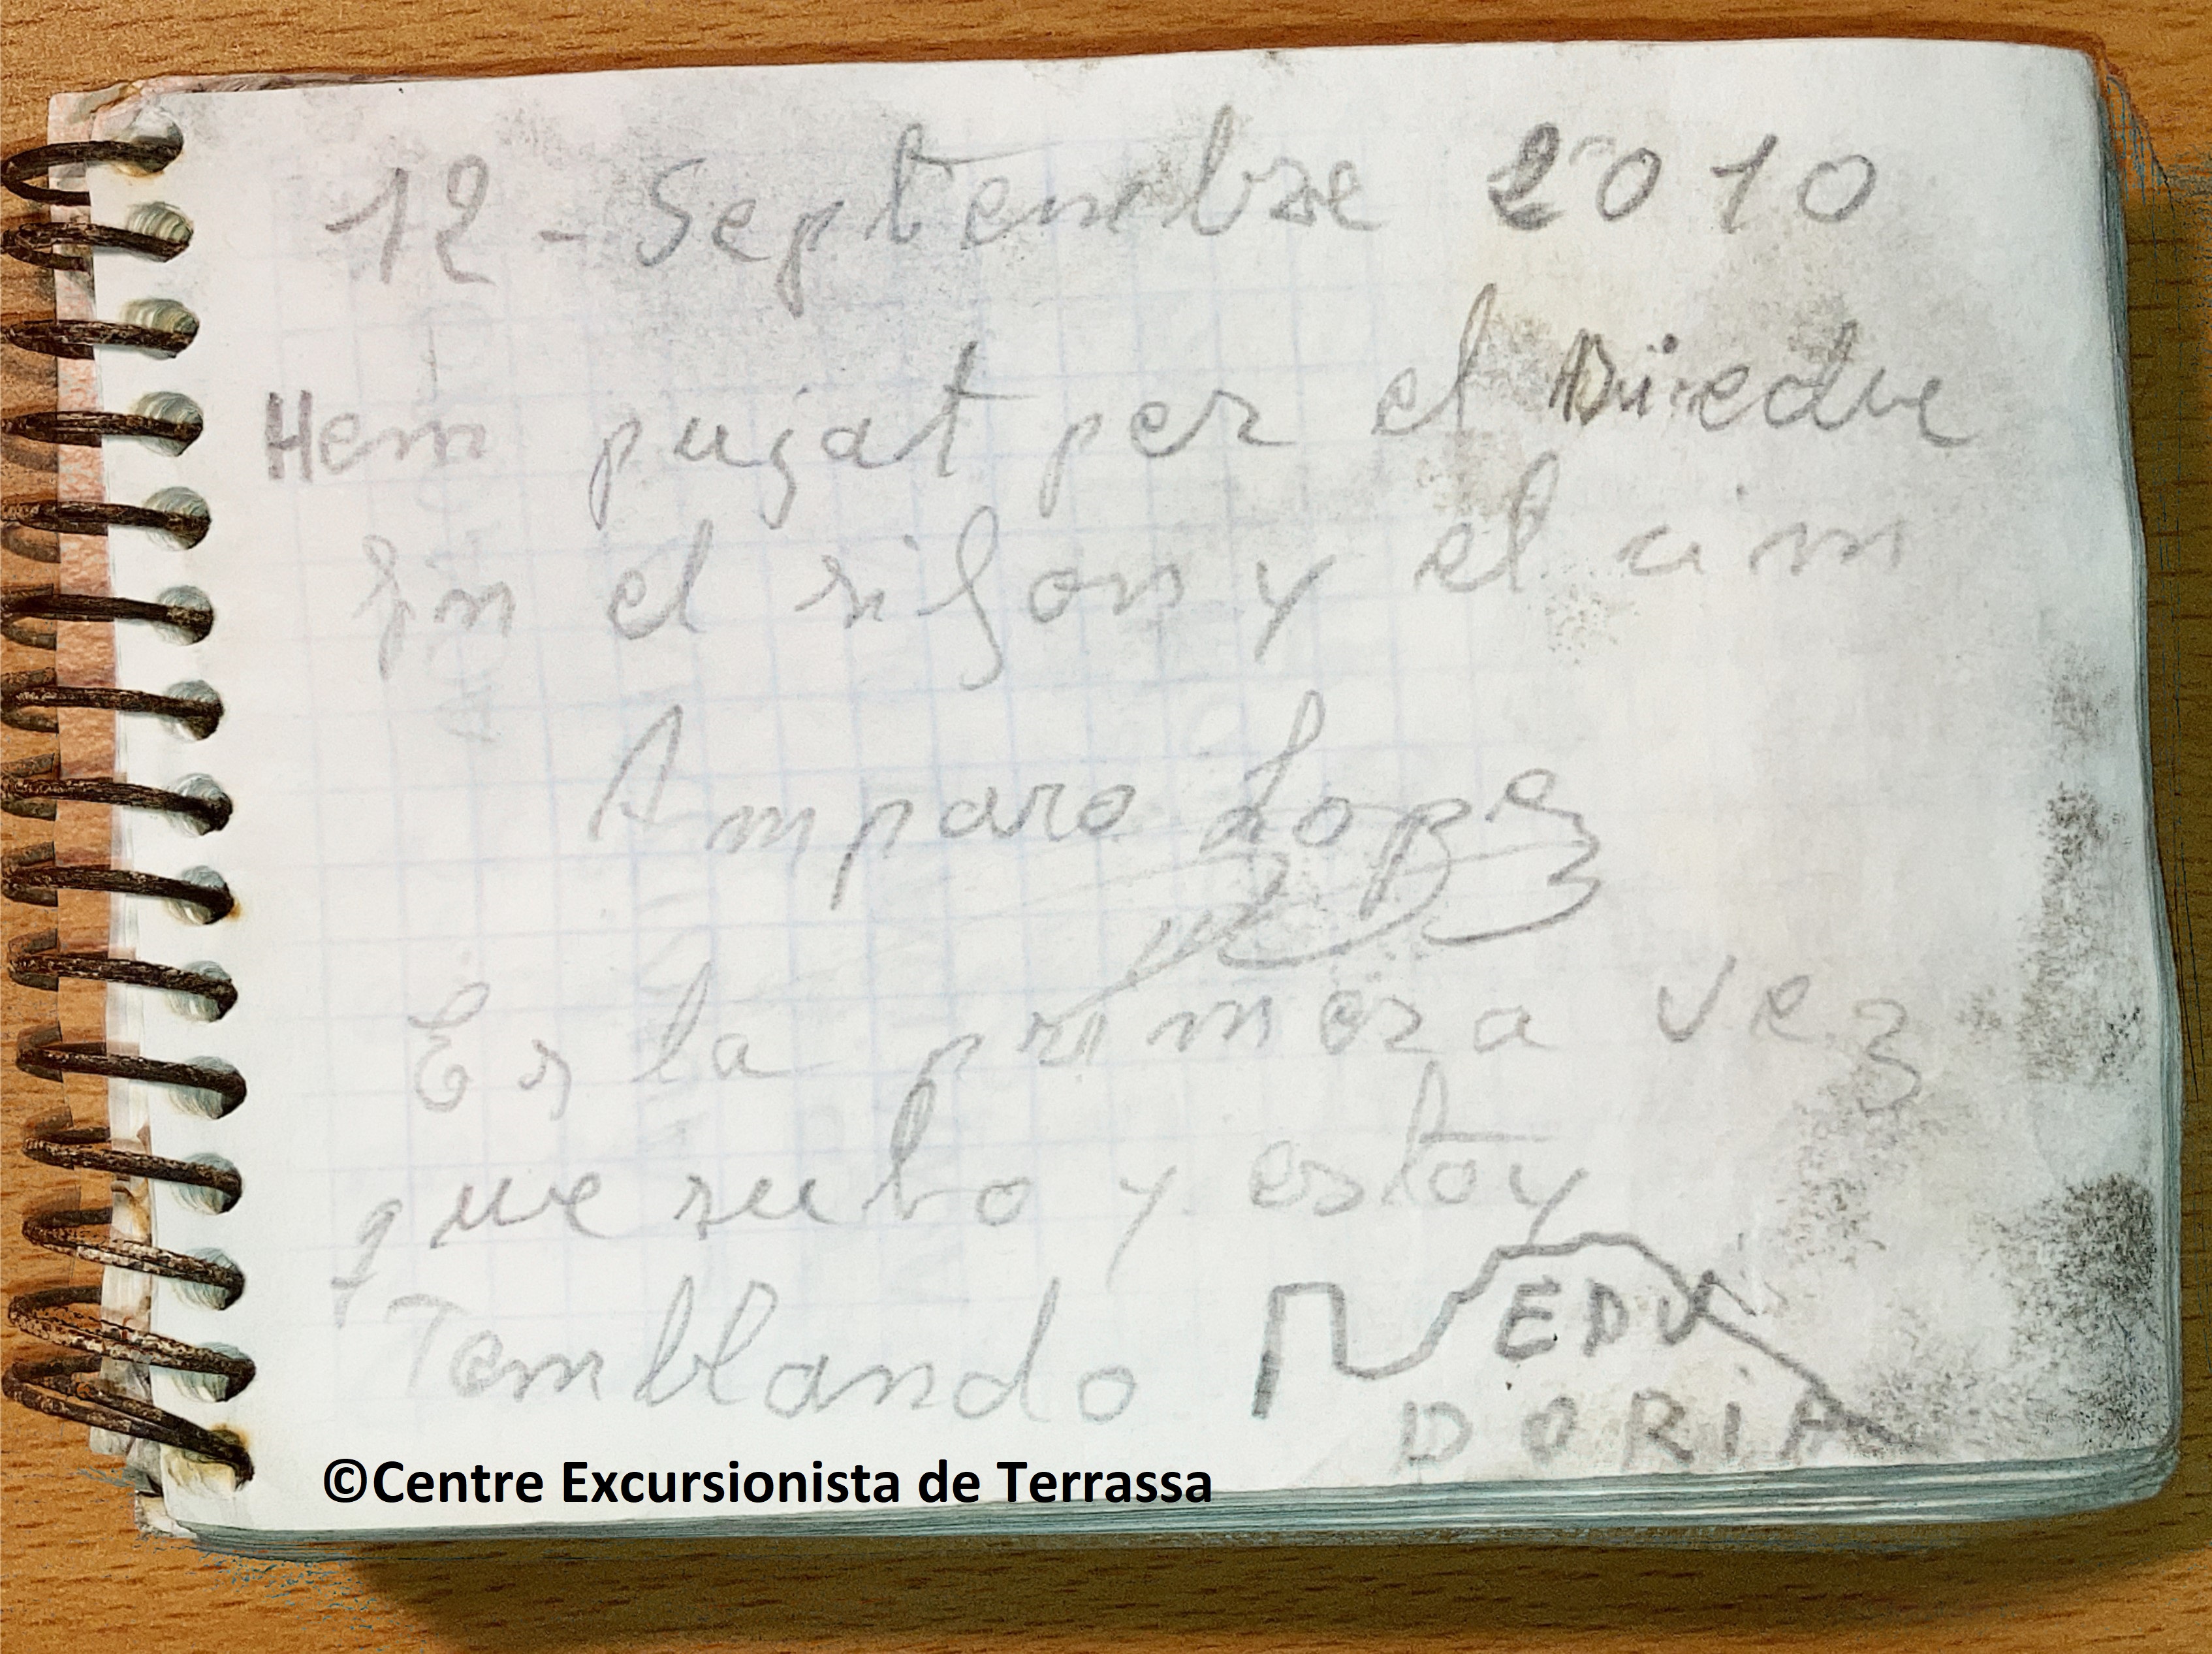 12 - Septembre 2010
Hem pujat per el Diedre
fin el sifon y el cim
Amparo Lopez
Es la primera vez
que subo y estoy
Temblando
EDU
DORIA
©Centre Excursionista de Terrassa